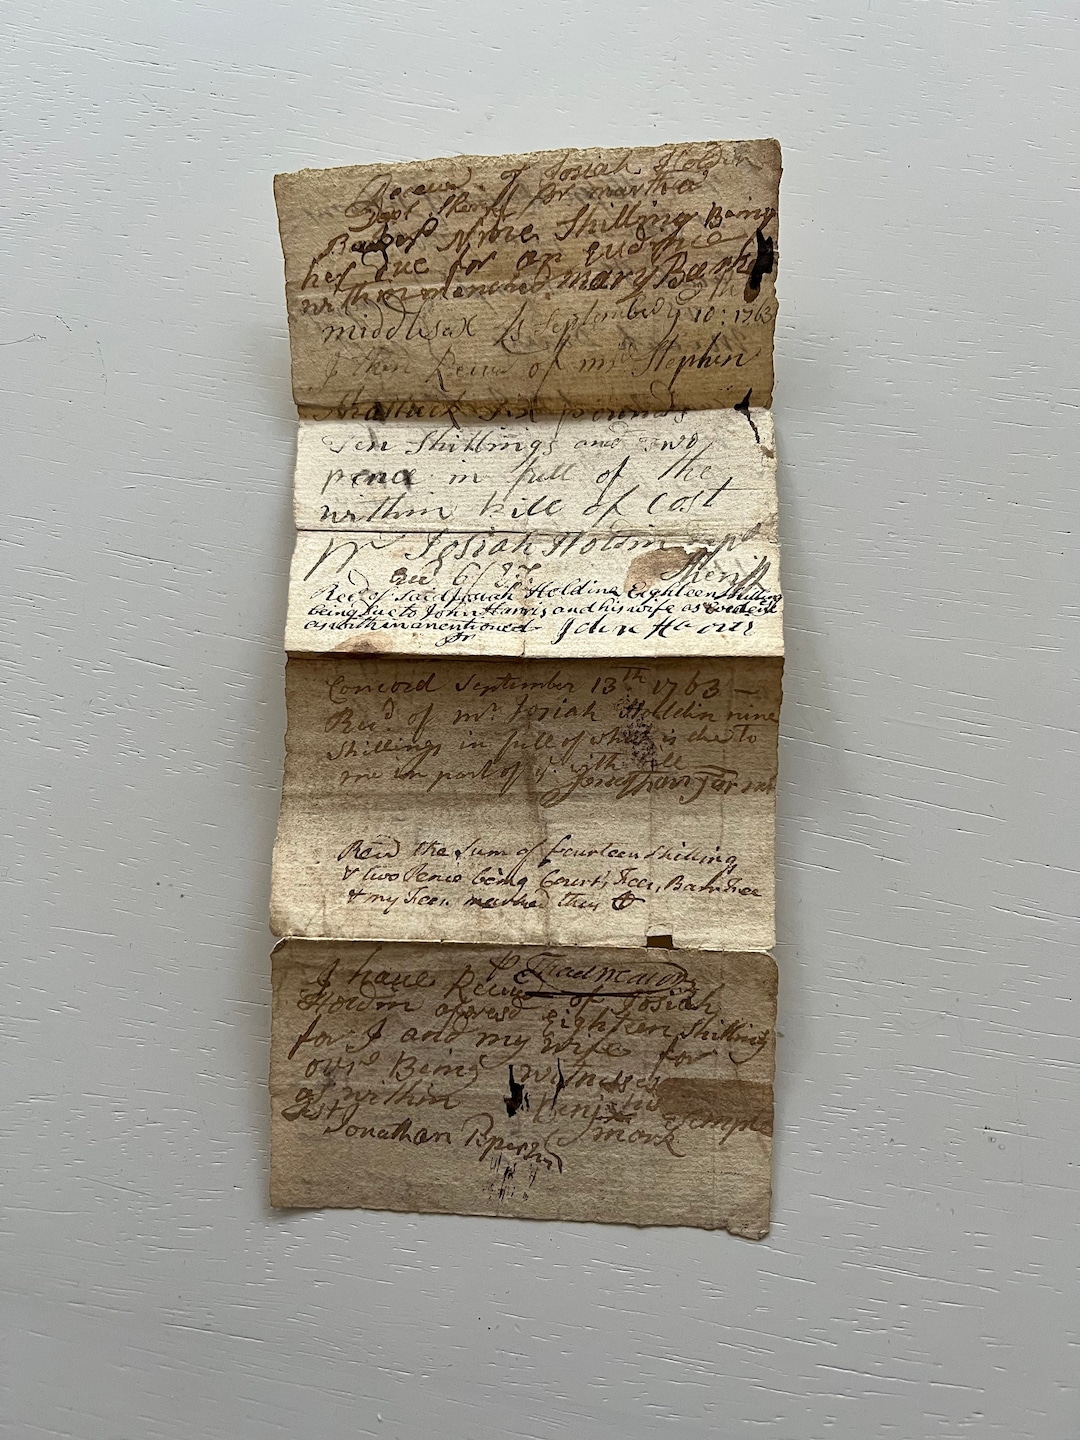 Receivd of Josiah Holdin
Dept Sheriff for martha
Nine Shilling Being
her due for an Evidence
within mentioned mary
middlesex ss September ye 10th: 1763
I then Receivd of mr Stephen
Shattuck Six pounds
Ten Shillings and two
pence in full of the
within bill of Cost
pr Josiah Holdin Dept
Sheriff
Recd of Said Josiah Holding Eighteen Shillings
being due to John Harris and his wife as Evidence
as within mentioned John Harris
Jr
Concord September 13th 1763 —
Recd of mr Josiah Holddin nine
Shillings in full of what is due to
me in part of ye with bill
Jonathan
Recd the Sum of fourteen Shilling
& two Pence being Court's Fees, Barr Fee
& my Fees. marked thus
Thad Mason
I have Receivd of Josiah
Holdin aforesd Eighteen Shillings
for I and my wife for
our Being witnesses
as within benj his Temple
Test mark
Jonathan